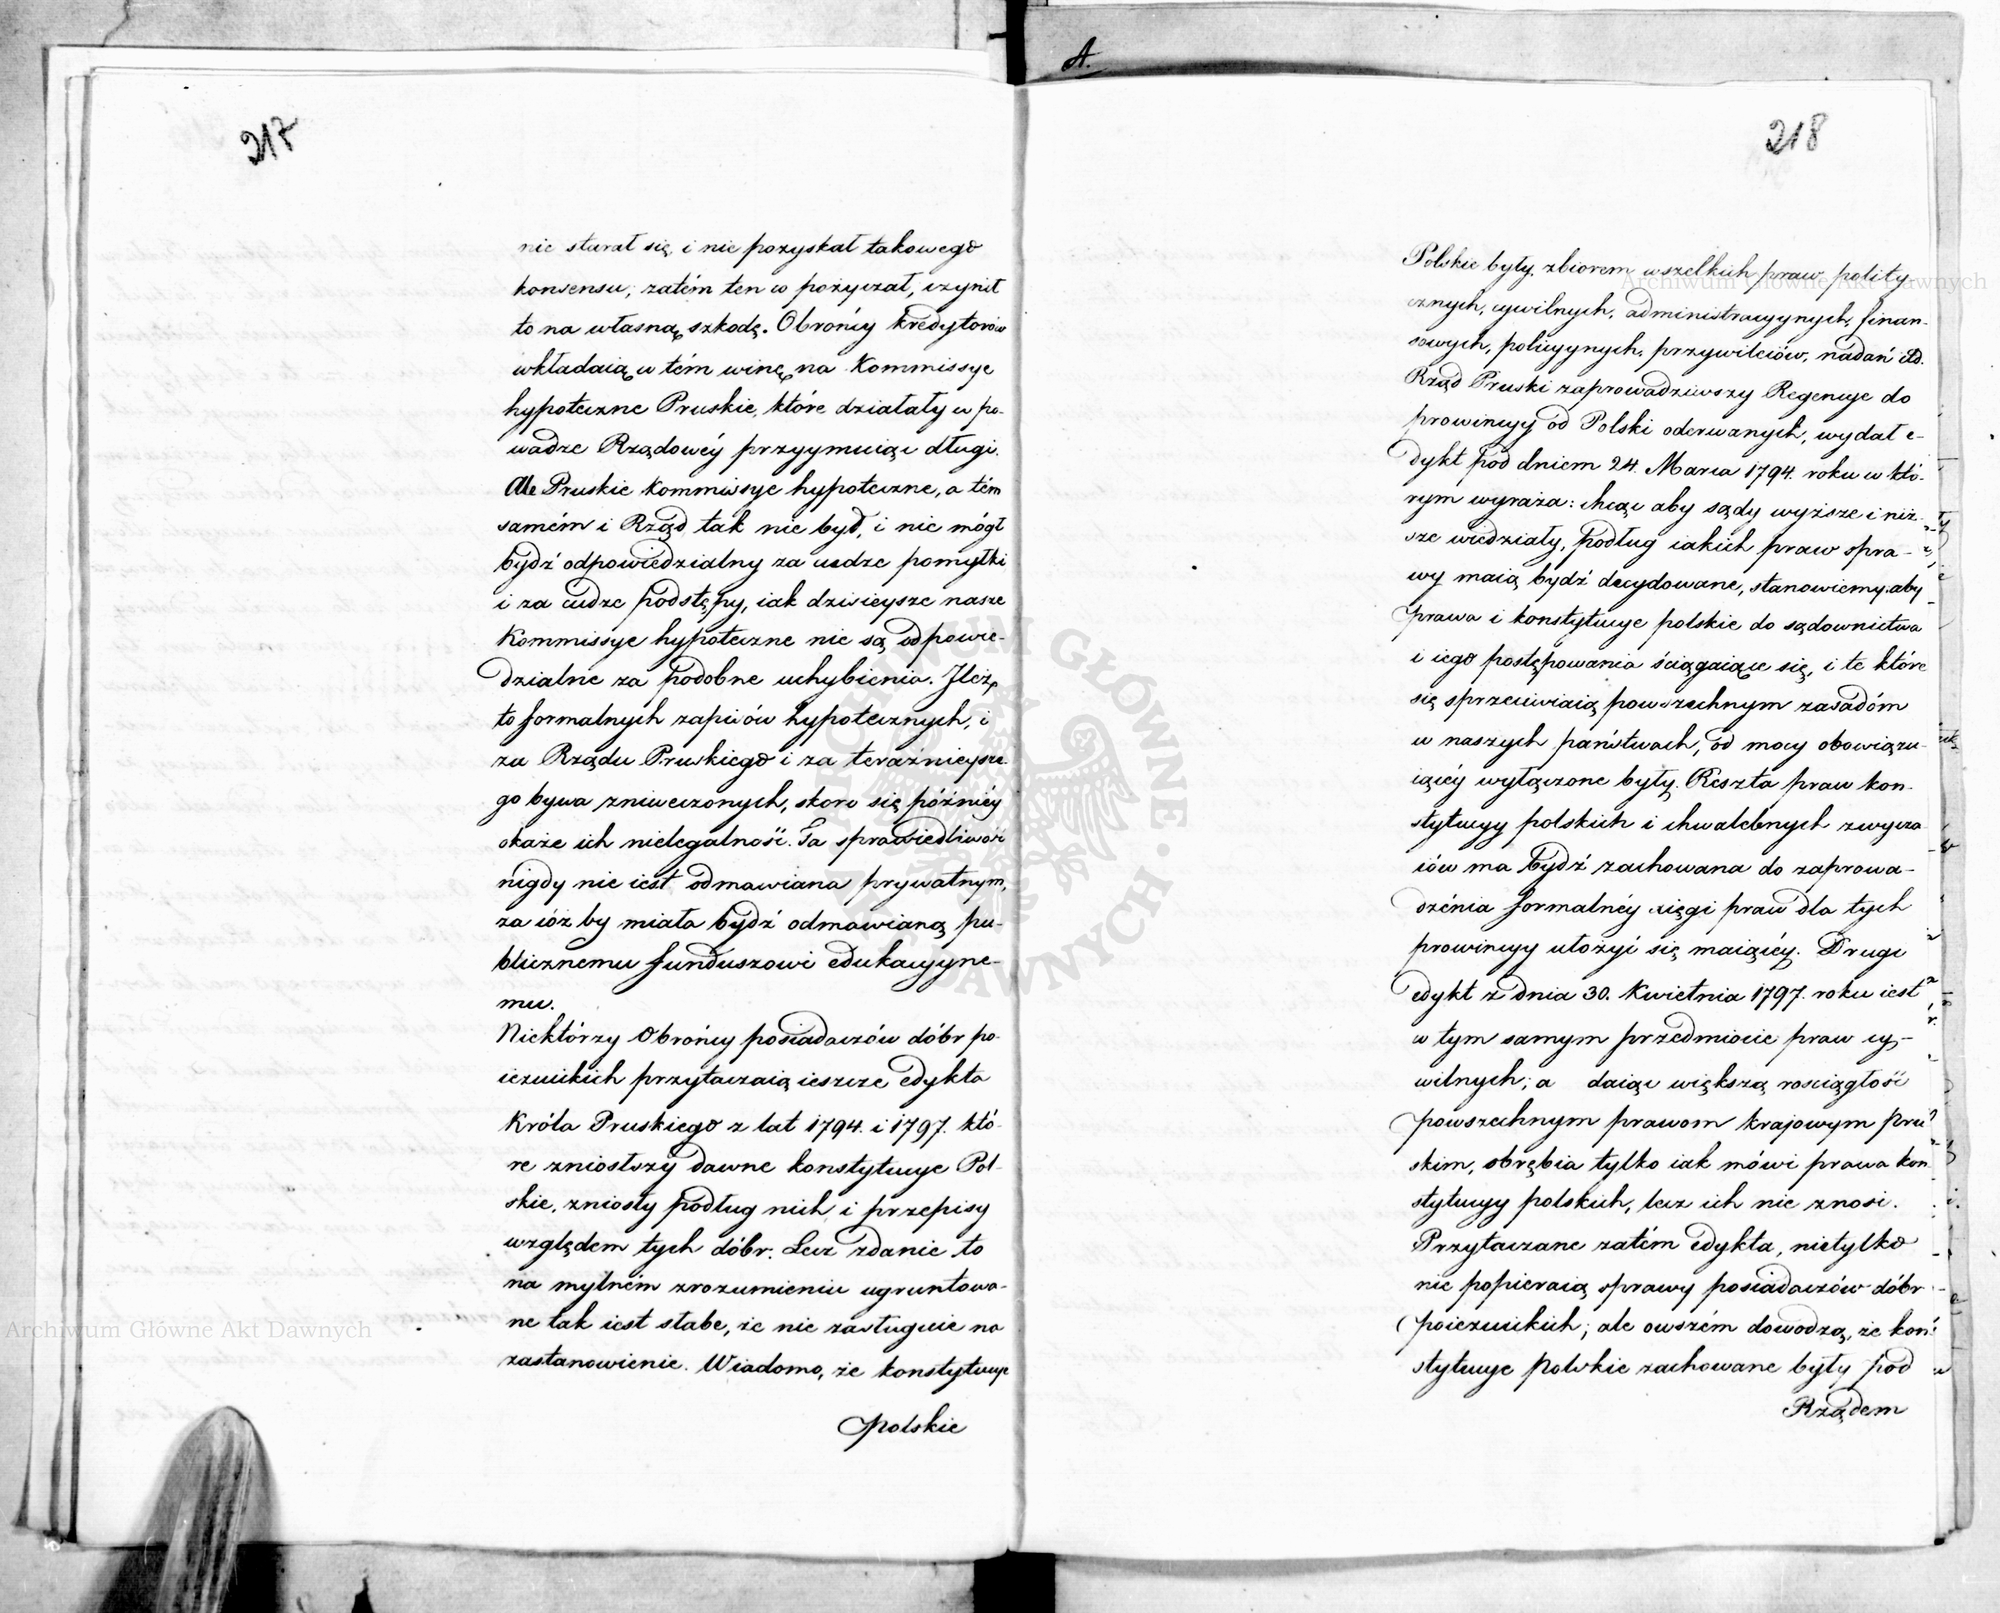 217
nie starał się, i nie pozyskał takowego
konsensu; zatém ten co pożyczał, czynił
to na własną szkodę. Obrońcy kredytorów
wkładaią w tém winę na Kommissye
hypoteczne Pruskie, które działały w po-
wadze Rządowéy przyymuiąc długi.
Ale Pruskie Kommissye hypoteczne, a tém
samém i Rząd tak nie był, i nie mógł
bydź odpowiedzialny za cudze pomyłki
i za cudze podstępy, iak dzisieysze nasze
Kommissye hypoteczne nie są odpowie-
dzialne za podobne uchybienia. Ileż
to formalnych zapisów hypotecznych, i
za Rządu Pruskiego i za teraźnieysze-
go bywa zniweczonych, skoro się późniéy
okaże ich nielegalność. Ta sprawiedliwość
nigdy nie iest odmawiana prywatnym,
za cóż by miała bydź odmawianą pu-
blicznemu funduszowi edukacyyne-
mu.
Niektórzy Obrońcy posiadaczów dóbr po
iezuickich przytaczaią ieszcze edykta
Króla Pruskiego z lat 1794. i 1797. któ-
re zniosłszy dawne konstytucye Pol-
skie, zniosły podług nich i przepisy
względem tych dóbr. Lecz zdanie to
na mylném zrozumieniu ugruntowa-
ne tak iest słabe, że nie zasługuie na
zastanowienie. Wiadomo, że konstytucye
Polskie
A.
218
Polskie były zbiorem wszelkich praw polity
cznych, cywilnych, administracyynych, finan-
sowych, policyynych, przywileiów, nadań itd.
Rząd Pruski zaprowadziwszy Regencye do
prowincyy od Polski oderwanych, wydał e-
dykt pod dniem 24. Marca 1794. roku w któ-
rym wyraża: chcąc aby sądy wyższe i niż-
sze wiedziały, podług iakich praw spra-
wy maią bydź decydowane, stanowiemy aby
prawa i konstytucye polskie do sądownictwa
i iego postępowania ściągaiące się, i te które
się sprzeciwiaią powszechnym zasadóm
w naszych państwach, od mocy obowiązu-
iącéy wyłączone były. Reszta praw kon-
stytucyy polskich i chwalebnych zwycza
iów ma bydź zachowana do zaprowa-
dzénia formalnéy xięgi praw dla tych
prowincyy ułożyć się maiącéy. Drugi
edykt z dnia 30. Kwietnia 1797. roku iest
w tym samym przedmiocie praw cy-
wilnych; a daiąc większą rosciągłość
powszechnym prawom krajowym pru
skim, obrębia tylko iak mówi prawa kon
stytucyy polskich, lecz ich nie znosi.
Przytaczane zatém edykta, nietylko
nie popieraią sprawy posiadaczów dóbr
poiezuickich; ale owszém dowodzą, że kon
stytucye Polskie zachowane były pod
Rządem
Archiwum Główne Akt Dawnych
Archiwum Główne Akt Dawnych
ARCHIWUM GŁÓWNE AKT DAWNYCH